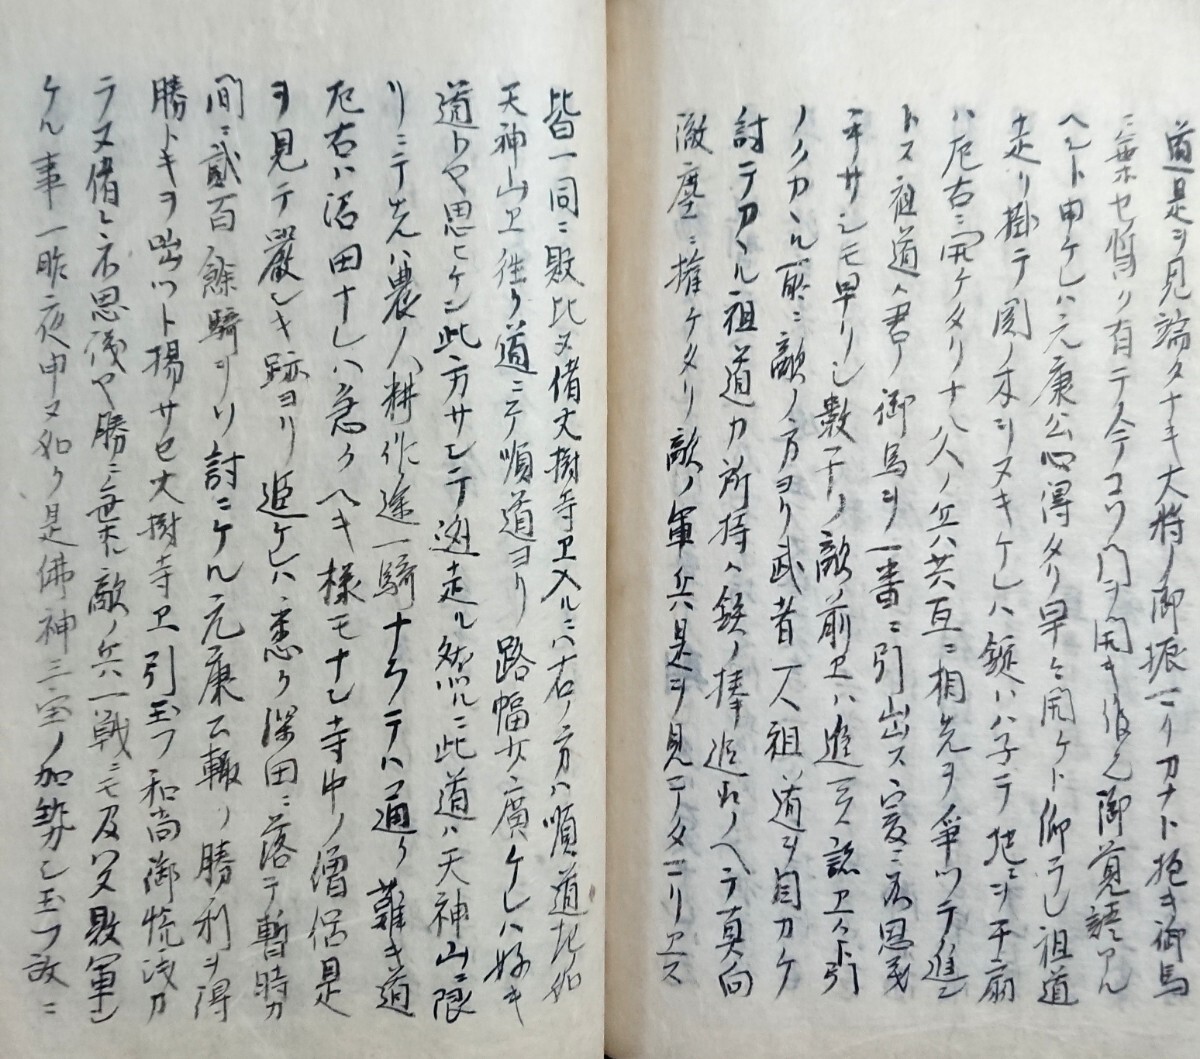 道是ヲ見論タナキ大将ノ御振マリカナト抱キ御馬
ニ乗セ
ヘント申ケレハ元康公心得タリ早々開ケト仰ラレ祖道
走リ掛テ関ノ木ヲヌキケレハ錠ハハ子テ地ニ平扇
ハ左右ニ開ケタリ十八人ノ兵共互ニ相先ヲ争ツテ進ン
トス祖道ハ君ノ御馬ヲ一番ニ引出ス爰ニ不思議
ナサシモ早リシ数千ノ敵ノ前ヱハ進マス
ノクカヽル所ニ敵ノ方ヨリ武者一人祖道ヲ目カケ
討テカヽル祖道カ所持ハ鉄ノ棒追取ノヘテ真向
微塵ニ摧ケタリ敵ノ軍兵是ヲ見テタマリヱス
皆一同ニ敗北ス偖大樹寺ヱ入ルニハ右ノ方ハ順道
天神山ヱ往ク道ニテ順道ヨリ路幅少ニ廣ケレハ好キ
道トヤ思ヒケン此方サシテ逃走ル然ルニ此道ハ天神山ニ限
リニテ先ハ農ノ人耕作途一騎ナラテハ通リ難キ道
左右ハ沼田ナレハ急クヘキ様モナシ寺中ノ僧侶是
ヲ見テ厳シキ跡ヨリ追ケレハ悉ク深田ニ落テ暫時カ
間ニ貳百餘騎ヲソ討ニケル元康公轍ノ勝利ヲ得
勝トキヲ咄ツト揚サセ大樹寺ヱ引玉フ和尚御悦浅カ
ラス偖モ不思儀ヤ勝ニ乗ル敵ノ兵一戦ニモ及ハス敗軍シ
ケル事一昨夜申ス如ク是佛神三宝ノ加勢シ玉フ故ニ